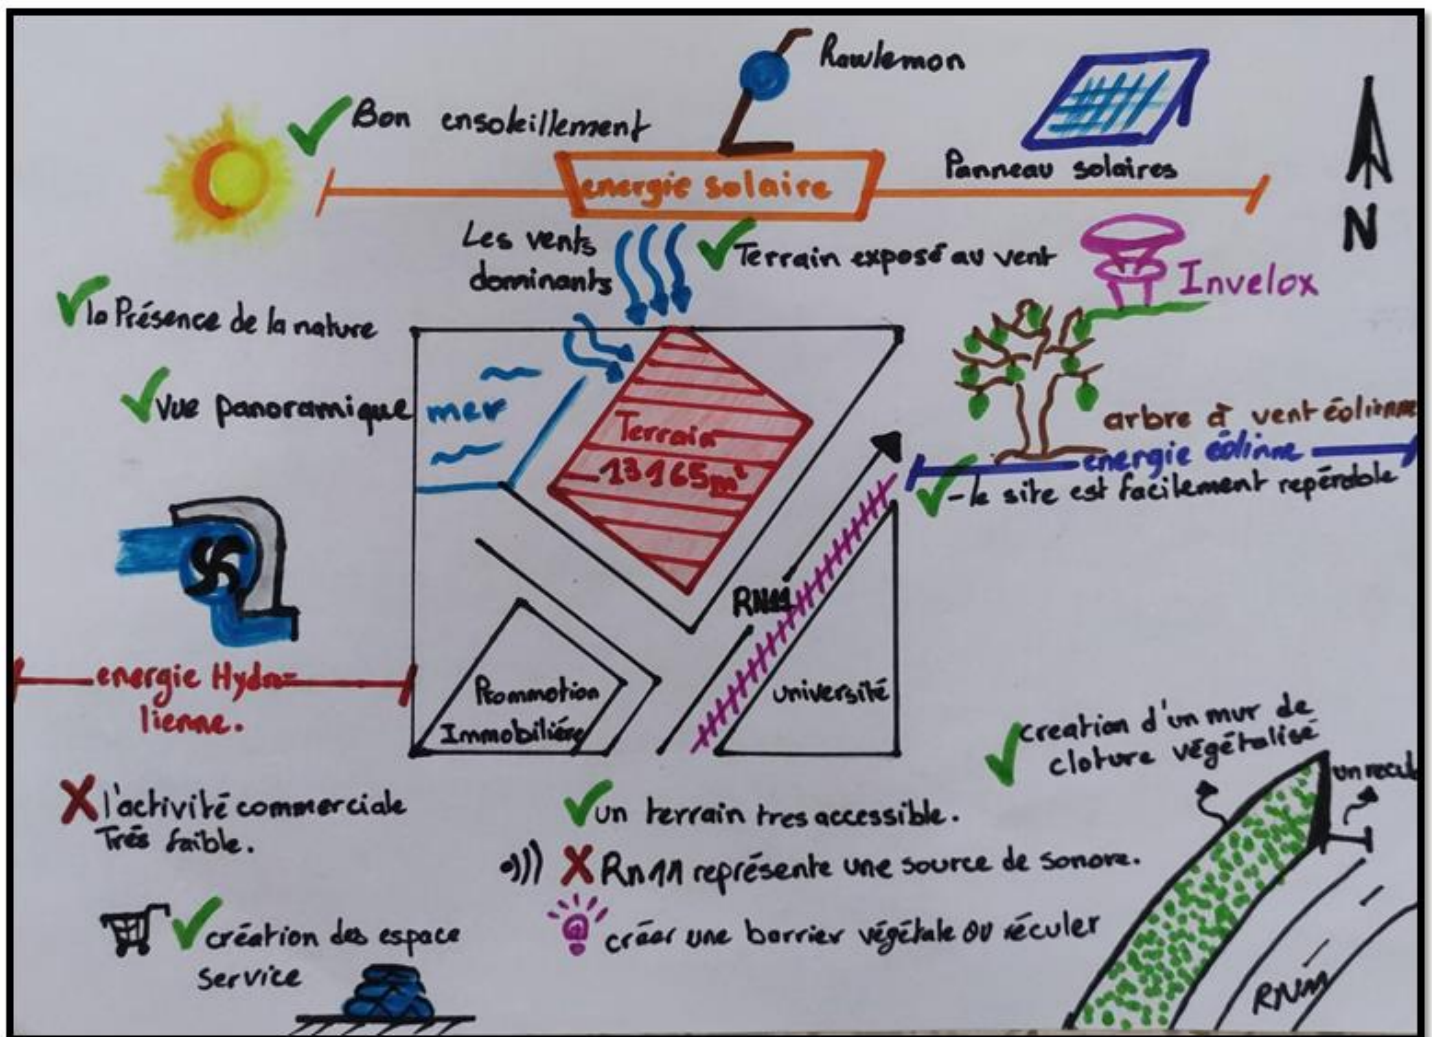 Rawlemon
Bon ensoleillement
Panneau solaires
energie solaire
N
Les vents
dominants
Terrain exposé au vent
Invelox
la Présence de la nature
vue panoramique
mer
Terrain
13165m²
arbre à vent éolienne
energie éolinne
- le site est facilement repérable
RN11
energie Hydro-
lienne.
Prommotion
Immobilière
université
creation d'un mur de
cloture végétalisé
un recul
l'activité commerciale
Trés faible.
un terrain tres accessible.
Rn11 représente une source de sonore.
créer une barrier végétale ou réculer
création des espace
service
RN11